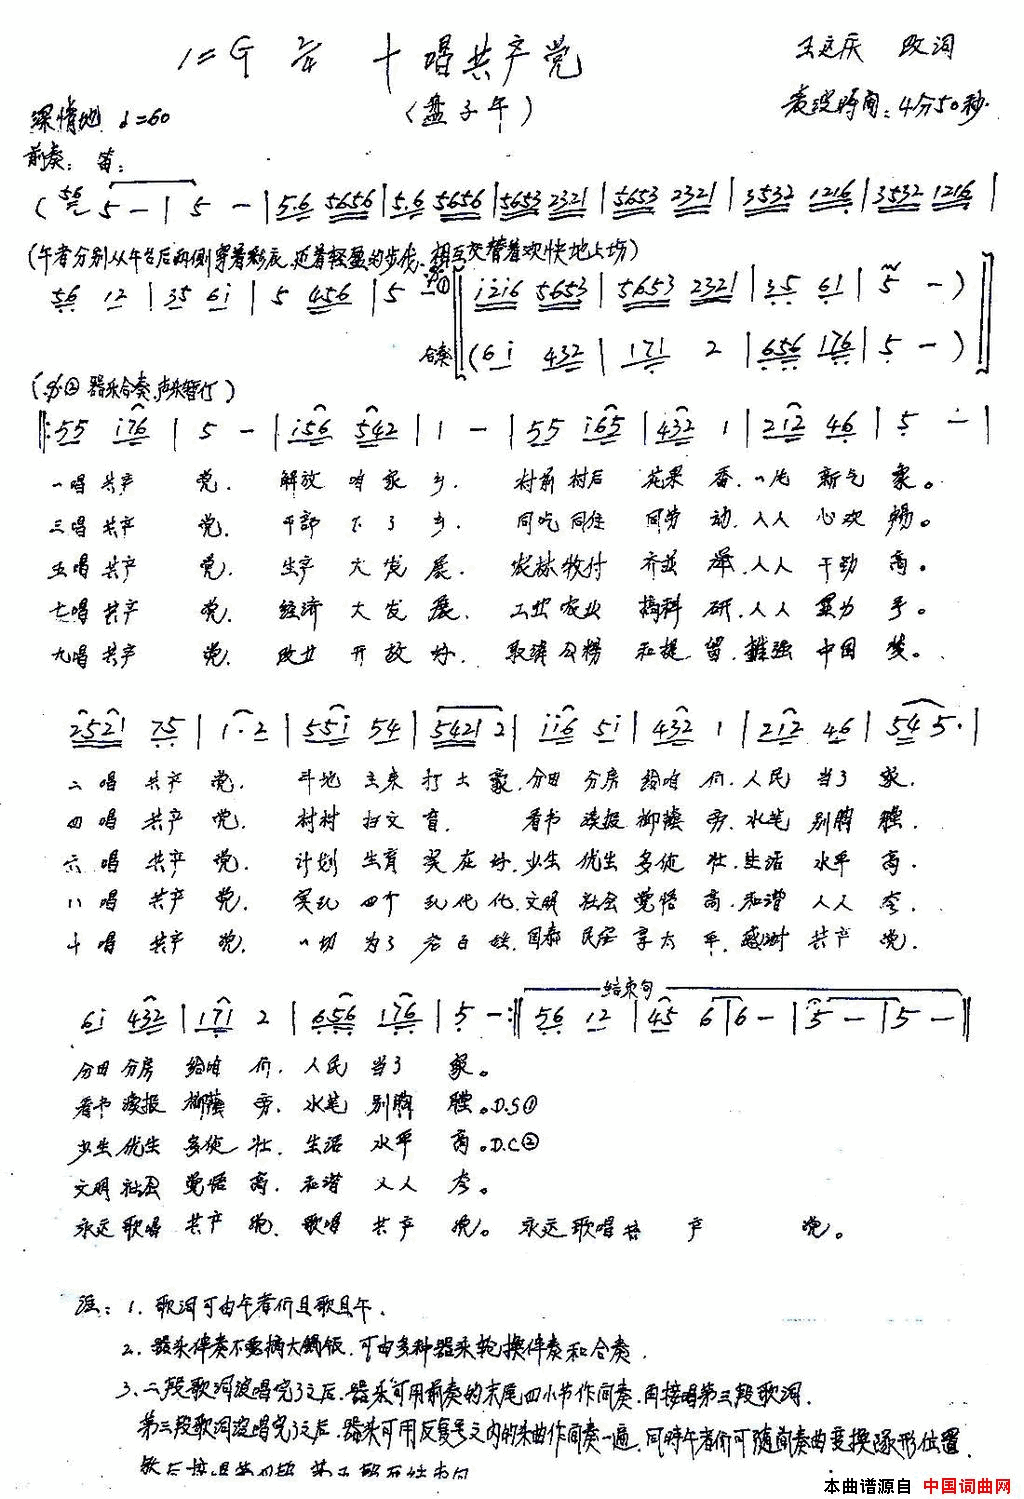 1=G 2/4 十唱共产党 王远庆 改词
(盘子午)
深情地 ♩=60 表演时间:4分50秒.
前奏:笛:
(56 5 — | 5 — | 5.6 5656 | 5.6 5656 | 5653 2321 | 5653 2321 | 3532 1216 | 3532 1216 |
(午者分别从午台后两侧穿着彩衣,迈着轻盈的步伐,相互交替着欢快地上场)
56 12 | 35 6i | 5 456 | 5 ① i2i6 5653 | 5653 2321 | 35 61 | 5 — )
合奏 (6i 432 | 171 2 | 656 176 | 5 — )
② 器乐合奏,声乐暂停)
‖: 55 i76 | 5 — | i56 542 | 1 — | 55 i65 | 432 1 | 212 46 | 5 — |
一唱共产 党. 解放 咱家 乡. 村前村后 花果 香.一片 新气 象。
三唱共产 党. 干部 下了 乡. 同吃同住 同劳 动.人人 心欢 畅。
五唱共产 党. 生产 大发 展. 农林牧付 齐并 举.人人 干劲 高。
七唱共产 党. 经济 大发 展. 工业农业 搞科 研.人人 显力 手。
九唱共产 党. 改革 开放 好. 取消公粮 和提 留. 中国
2521 75 | 1·2 | 55i 54 | 5421 2 | ii6 5i | 432 1 | 212 46 | 54 5. |
二唱 共产 党. 斗地 主来 打土豪.分田 分房 给咱 们.人民 当了 家.
四唱 共产 党. 村村 扫文 盲. 看书 读报 柳荫 旁.水笔 别胸 膛.
六唱 共产 党. 计划 生育 实在好.少生 优生 多健 壮.生活 水平 高.
八唱 共产 党. 实现 四个 现代化.文明 社会 觉悟 高.和谐 人人 夸.
十唱 共产 党. 一切 为了 老百姓.国泰 民安 享太 平.感谢 共产 党.
结束句
6i 432 | 171 2 | 656 176 | 5 — :‖ 56 12 | 45 6 | 6 — | 5 — | 5 — ‖
分田 分房 给咱 们. 人民 当了 家。
看书 读报 柳荫 旁. 水笔 别胸 膛。D.S①
少生 优生 多健 壮. 生活 水平 高。D.C②
文明 社会 觉悟 高. 和谐 人人 夸。
永远 歌唱 共产 党. 歌唱 共产 党。 永远歌唱共 产 党。
注:1. 歌词可由午者们且歌且午.
2. 器乐伴奏不要搞大锅饭.可由多种器乐轮换伴奏和合奏.
3. 二段歌词演唱完了之后.器乐可用前奏的末尾四小节作间奏.再接唱第三段歌词.
第三段歌词演唱完了之后.器乐可用反复号之内的乐曲作间奏一遍.同时午者们可随间奏曲变换队形位置.
本曲谱源自 中国词曲网